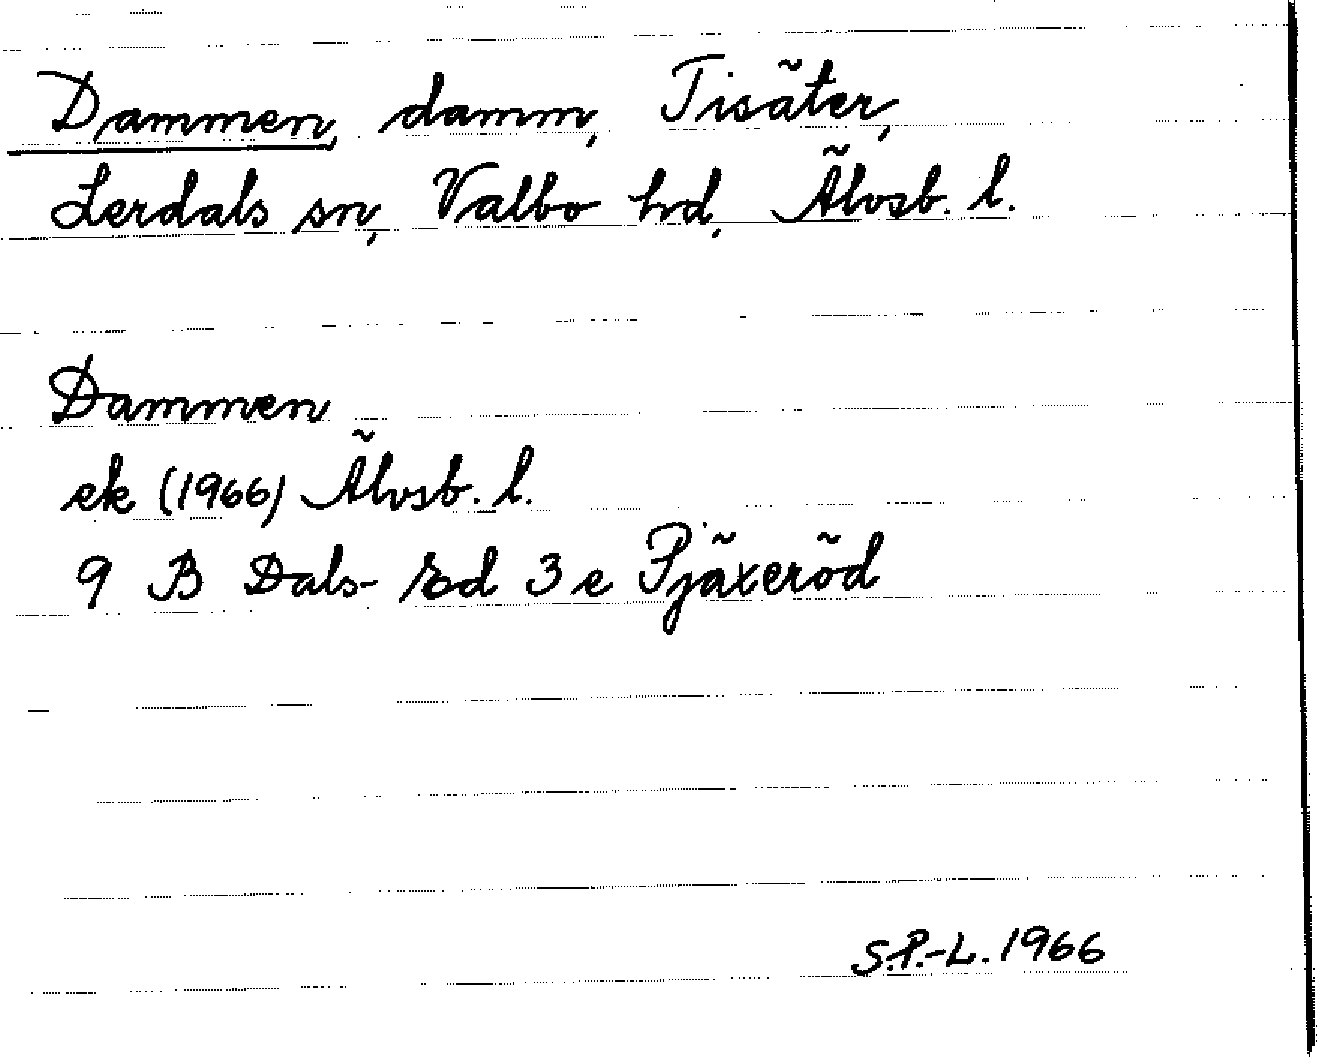 Dammen, damm, Tisäter,
Lerdals sn, Valbo hd, Älvsb. l.
Dammen
ek (1966) Älvsb. l.
9 B Dals-Ed 3 e Pjäxeröd
S.P.-L. 1966